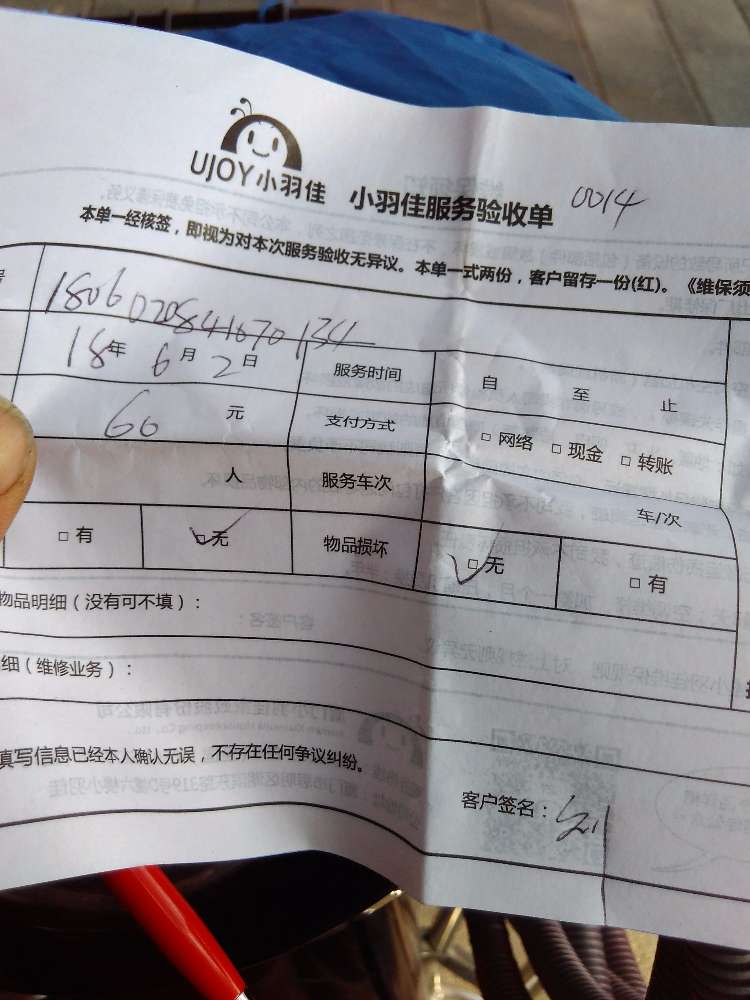 UJOY小羽佳 小羽佳服务验收单 0014
本单一经核签，即视为对本次服务验收无异议。本单一式两份，客户留存一份(红)。《维保须
1806020841670134
18年6月2日 服务时间 自 至 止
60 元 支付方式 □ 网络 □ 现金 □ 转账
人 服务车次 车/次
□ 有 □ 无 物品损坏 □ 无 □ 有
物品明细（没有可不填）：
细（维修业务）：
真写信息已经本人确认无误，不存在任何争议纠纷。
客户签名：